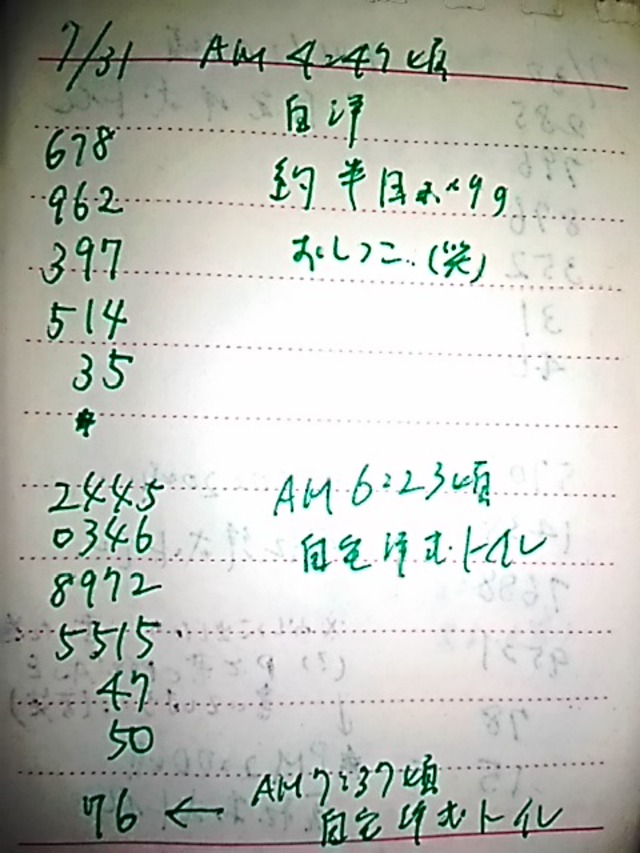 7/31 AM 4:47頃
自洋
678
962 約半目
397 おしっこ(笑)
514
35
*
2445 AM 6:23頃
0346 自宅洋式トイレ
8972
5515
47
50
76 ← AM7:37頃
自宅洋式トイレ